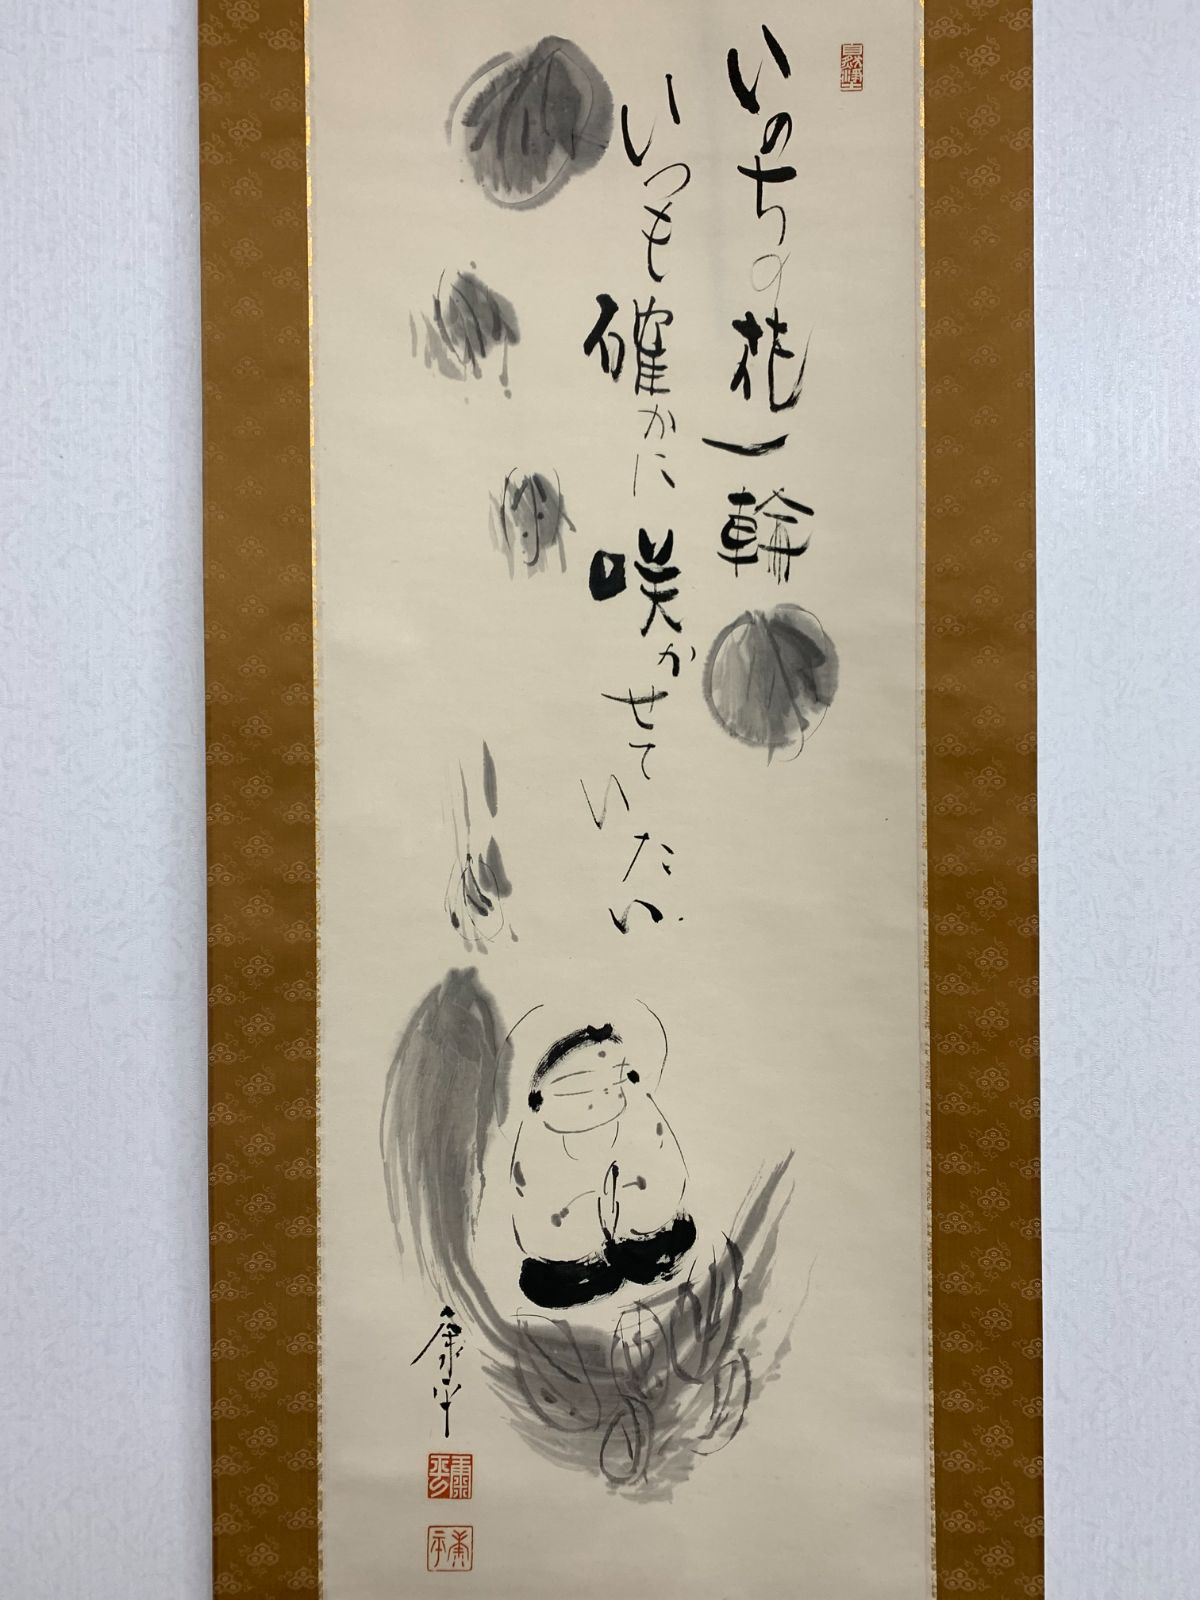 いのちの花一輪
いつも確かに咲かせていたい
康平